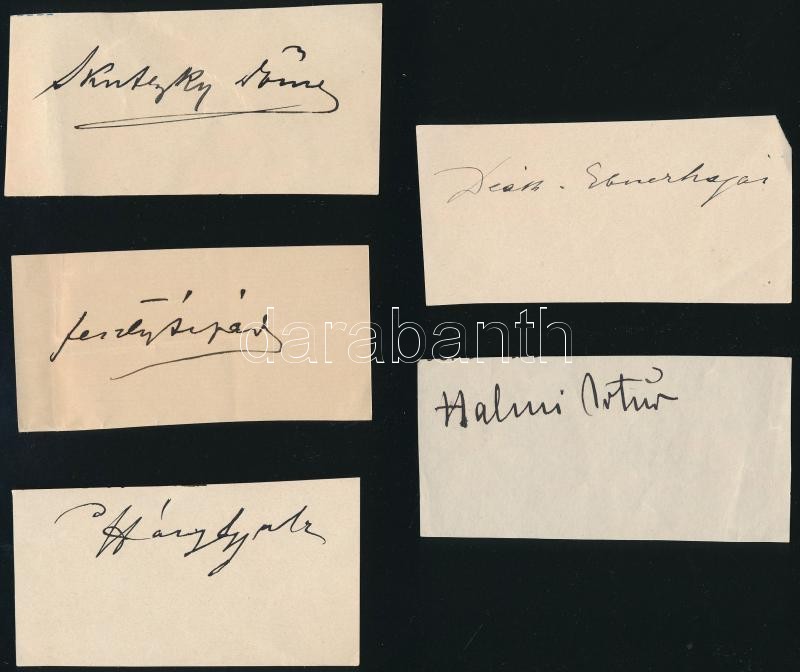 Skutezky Döme
Deák-Ebnerhajós
Feszty Árpád
darabanth
Halmi Artúr
Háry Gyula